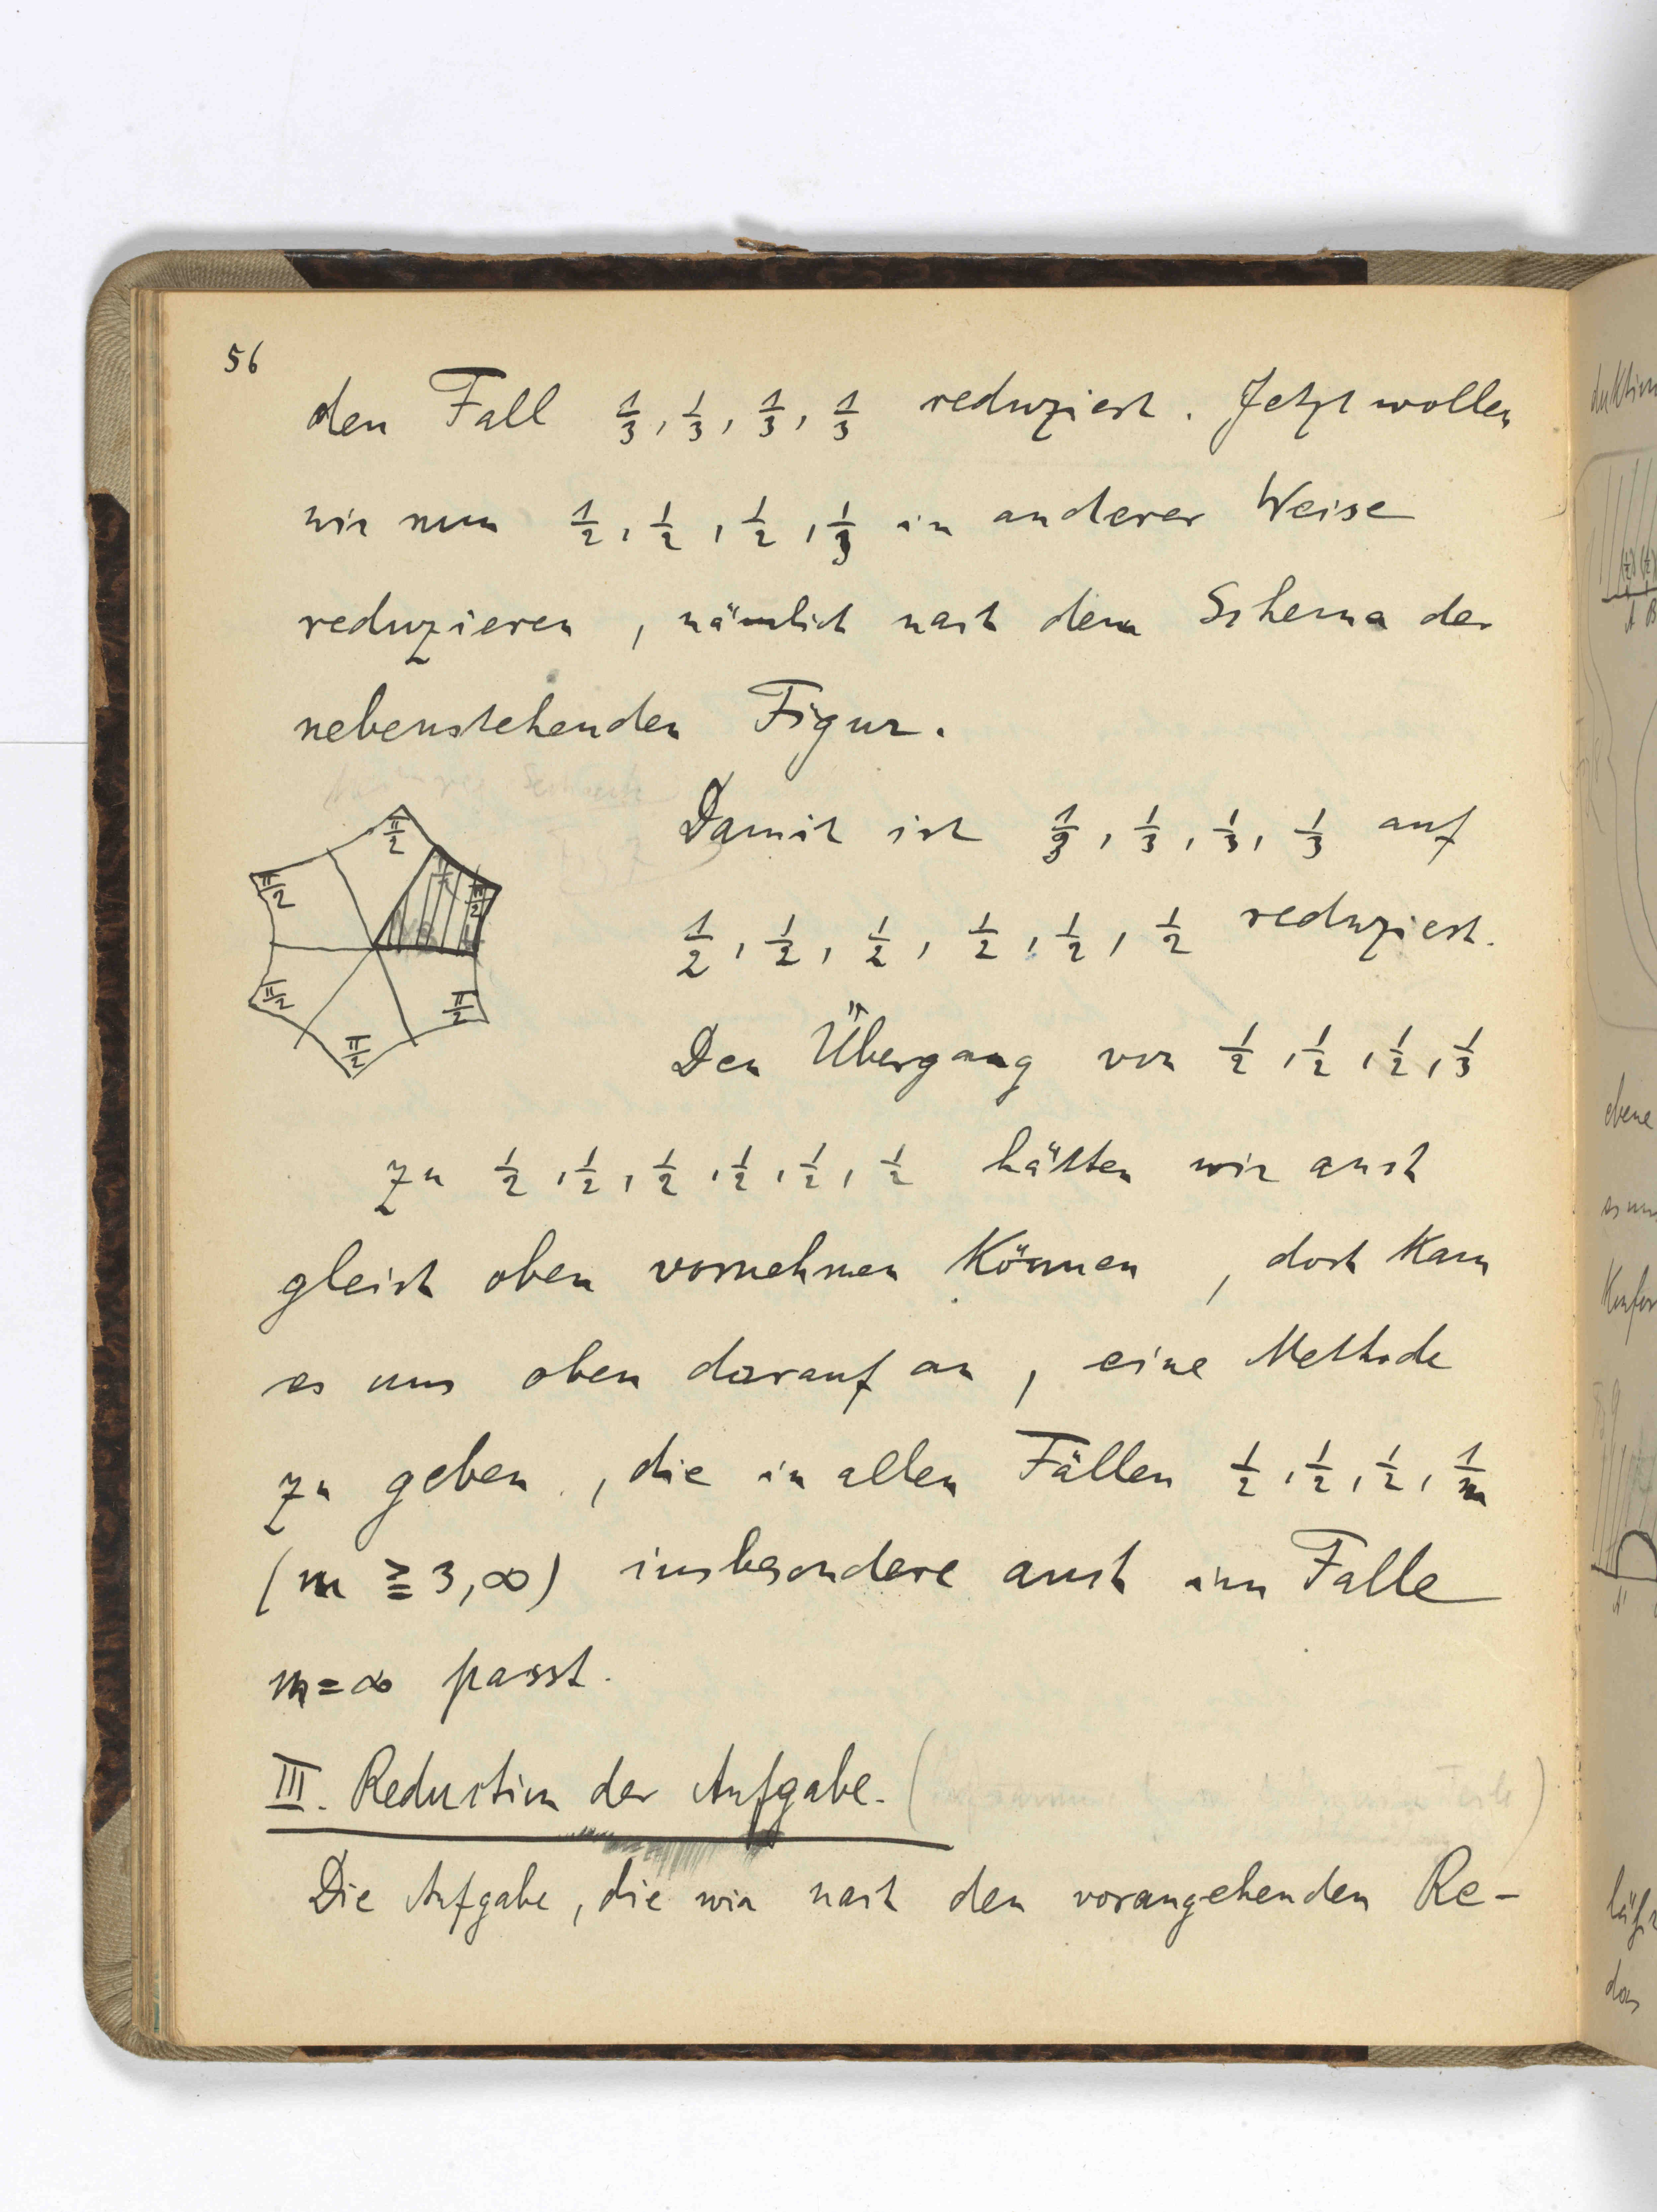 56
den Fall 1/3, 1/3, 1/3, 1/3 reduziert. Jetzt wollen
wir nun 1/2, 1/2, 1/2, 1/3 in anderer Weise
reduzieren, nämlich nach dem Schema der
nebenstehenden Figur.
π/2
π/2
π/2
π/2
π/2
π/2
Damit ist 1/3, 1/3, 1/3, 1/3 auf
1/2, 1/2, 1/2, 1/2, 1/2, 1/2 reduziert.
Den Übergang von 1/2, 1/2, 1/2, 1/3
zu 1/2, 1/2, 1/2, 1/2, 1/2, 1/2 hätten wir auch
gleich oben vornehmen können, doch kam
es uns oben darauf an, eine Methode
zu geben, die in allen Fällen 1/2, 1/2, 1/2, 1/m
(m ≧ 3, ∞) insbesondere auch im Falle
m = ∞ passt.
III. Reduction der Aufgabe. (
Die Aufgabe, die wir nach den vorangehenden Re-
ebene
das